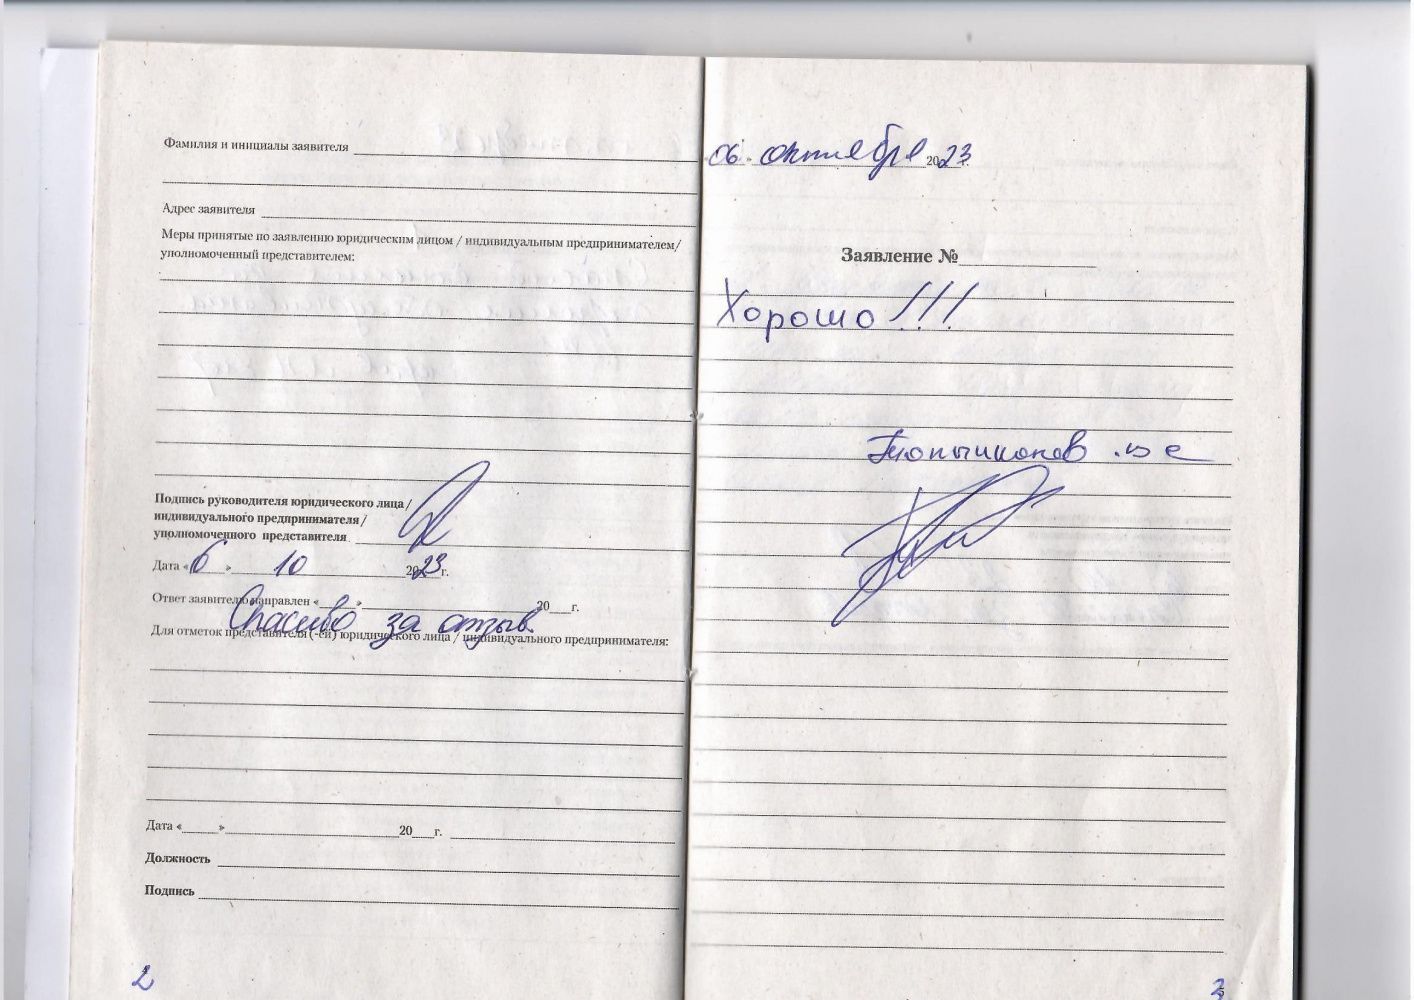 Фамилия и инициалы заявителя
Адрес заявителя
Меры принятые по заявлению юридическим лицом / индивидуальным предпринимателем/
уполномоченный представителем:
Подпись руководителя юридического лица/
индивидуального предпринимателя/
уполномоченного представителя
Дата «6» 10 2023 г.
Ответ заявителю направлен «____» 20___г.
Спасибо за отзыв.
Для отметок представителя (-ей) юридического лица / индивидуального предпринимателя:
Дата «_____» 20___г.
Должность
Подпись
2
06 октября 2023 г.
Заявление №
Хорошо!!!
3